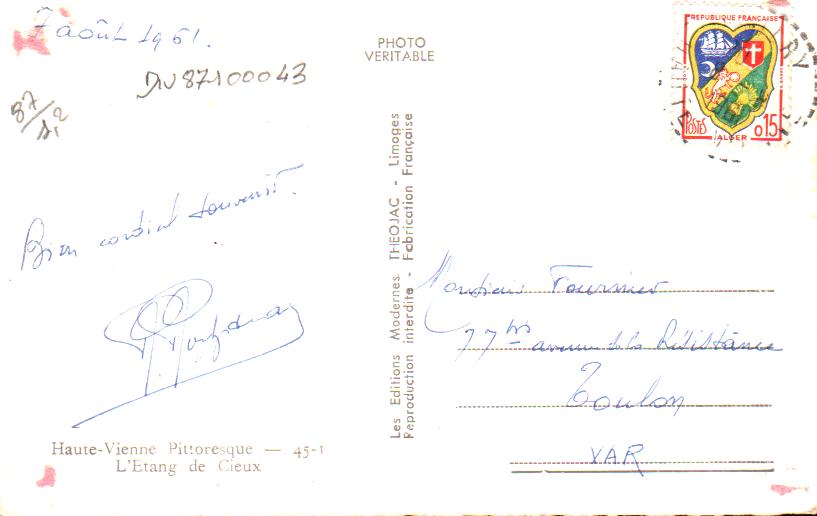 7 août 1961.
DV87100043
87/
Bien cordial souvenir.
Haute-Vienne Pittoresque — 45-1
L'Etang de Cieux
PHOTO
VERITABLE
Les Editions Modernes THEOJAC - Limoges
Reproduction interdite - Fabrication Française
REPUBLIQUE FRANÇAISE
POSTES
0,15
ALGER
Monsieur Fournier
77 bis avenue de la Résistance
Toulon
VAR